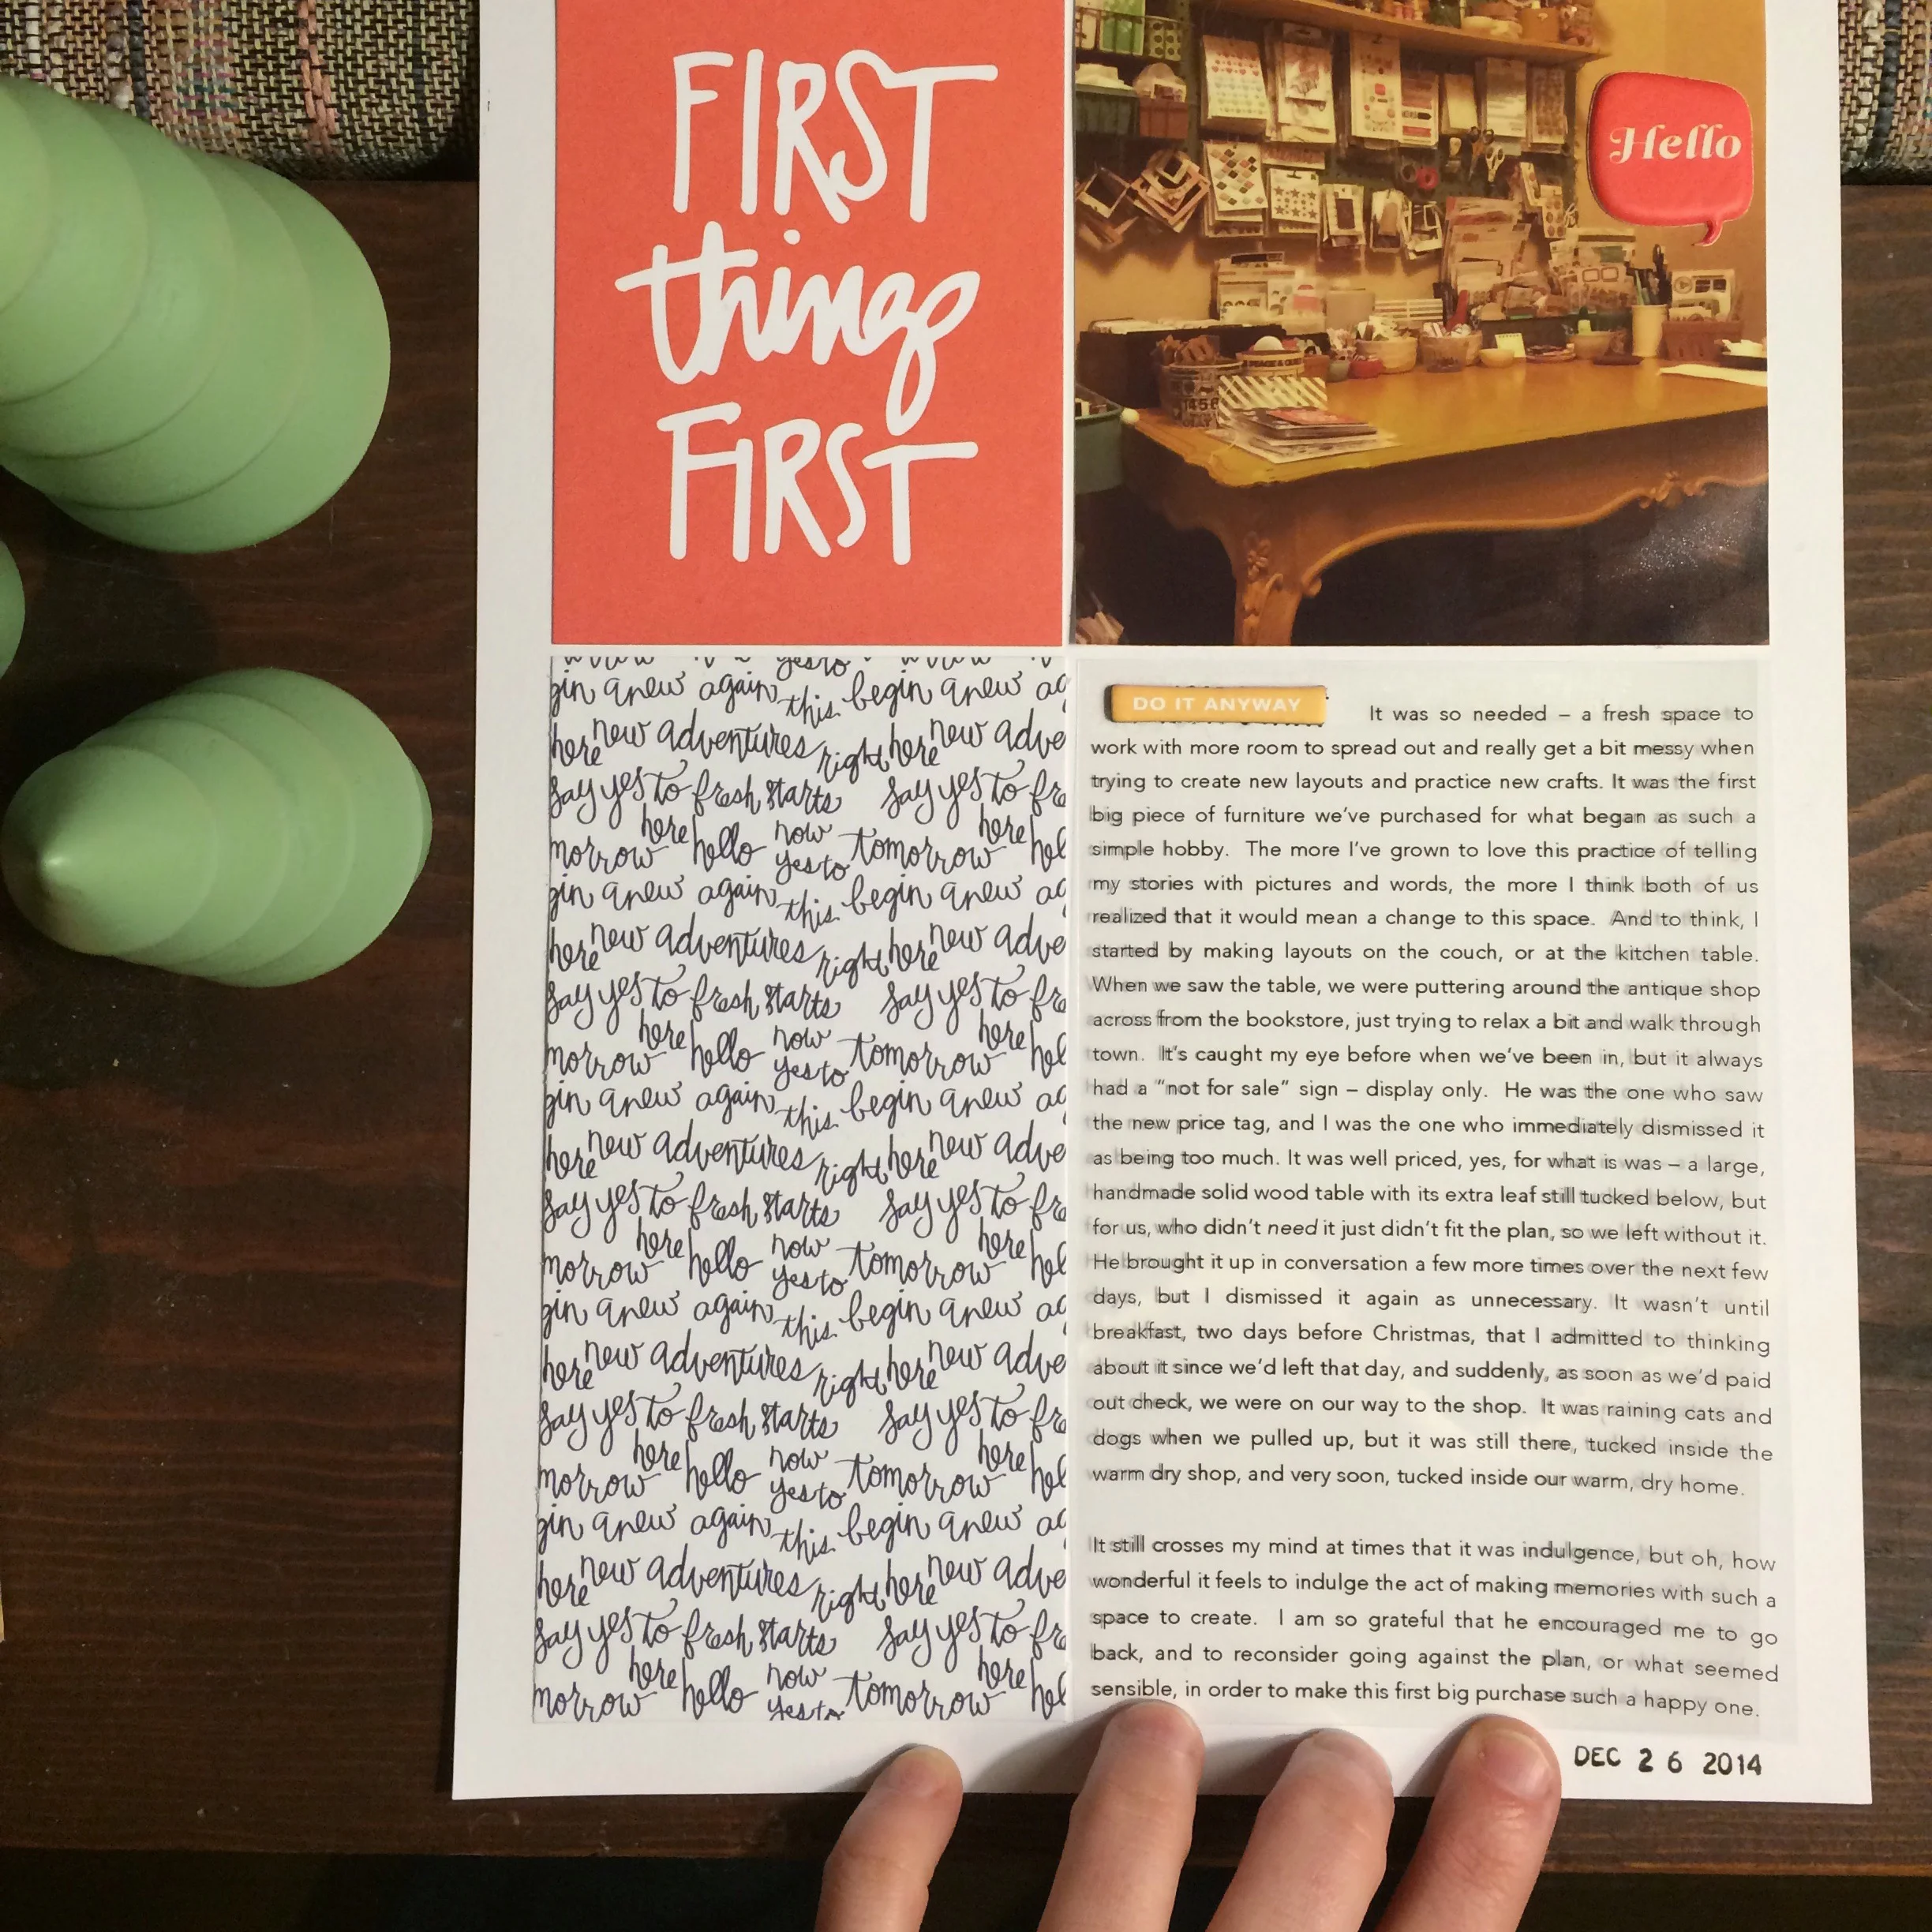 FIRST
things
FIRST
Hello
yes to
gin anew again this begin anew ag
here new adventures right here new adve
say yes to fresh starts say yes to fre
morrow here hello now yes to tomorrow here hel
gin anew again this begin anew ag
here new adventures right here new adve
say yes to fresh starts say yes to fre
morrow here hello now yes to tomorrow here hel
gin anew again this begin anew ag
here new adventures right here new adve
say yes to fresh starts say yes to fre
morrow here hello now yes to tomorrow here hel
gin anew again this begin anew ag
here new adventures right here new adve
say yes to fresh starts say yes to fre
morrow here hello now yes to tomorrow here hel
gin anew again this begin anew ag
here new adventures right here new adve
say yes to fresh starts say yes to fre
morrow here hello now yes to tomorrow here hel
DO IT ANYWAY
It was so needed – a fresh space to
work with more room to spread out and really get a bit messy when
trying to create new layouts and practice new crafts. It was the first
big piece of furniture we've purchased for what began as such a
simple hobby. The more I've grown to love this practice of telling
my stories with pictures and words, the more I think both of us
realized that it would mean a change to this space. And to think, I
started by making layouts on the couch, or at the kitchen table.
When we saw the table, we were puttering around the antique shop
across from the bookstore, just trying to relax a bit and walk through
town. It's caught my eye before when we've been in, but it always
had a "not for sale" sign – display only. He was the one who saw
the new price tag, and I was the one who immediately dismissed it
as being too much. It was well priced, yes, for what is was – a large,
handmade solid wood table with its extra leaf still tucked below, but
for us, who didn't need it just didn't fit the plan, so we left without it.
He brought it up in conversation a few more times over the next few
days, but I dismissed it again as unnecessary. It wasn't until
breakfast, two days before Christmas, that I admitted to thinking
about it since we'd left that day, and suddenly, as soon as we'd paid
out check, we were on our way to the shop. It was raining cats and
dogs when we pulled up, but it was still there, tucked inside the
warm dry shop, and very soon, tucked inside our warm, dry home.
It still crosses my mind at times that it was indulgence, but oh, how
wonderful it feels to indulge the act of making memories with such a
space to create. I am so grateful that he encouraged me to go
back, and to reconsider going against the plan, or what seemed
sensible, in order to make this first big purchase such a happy one.
DEC 26 2014